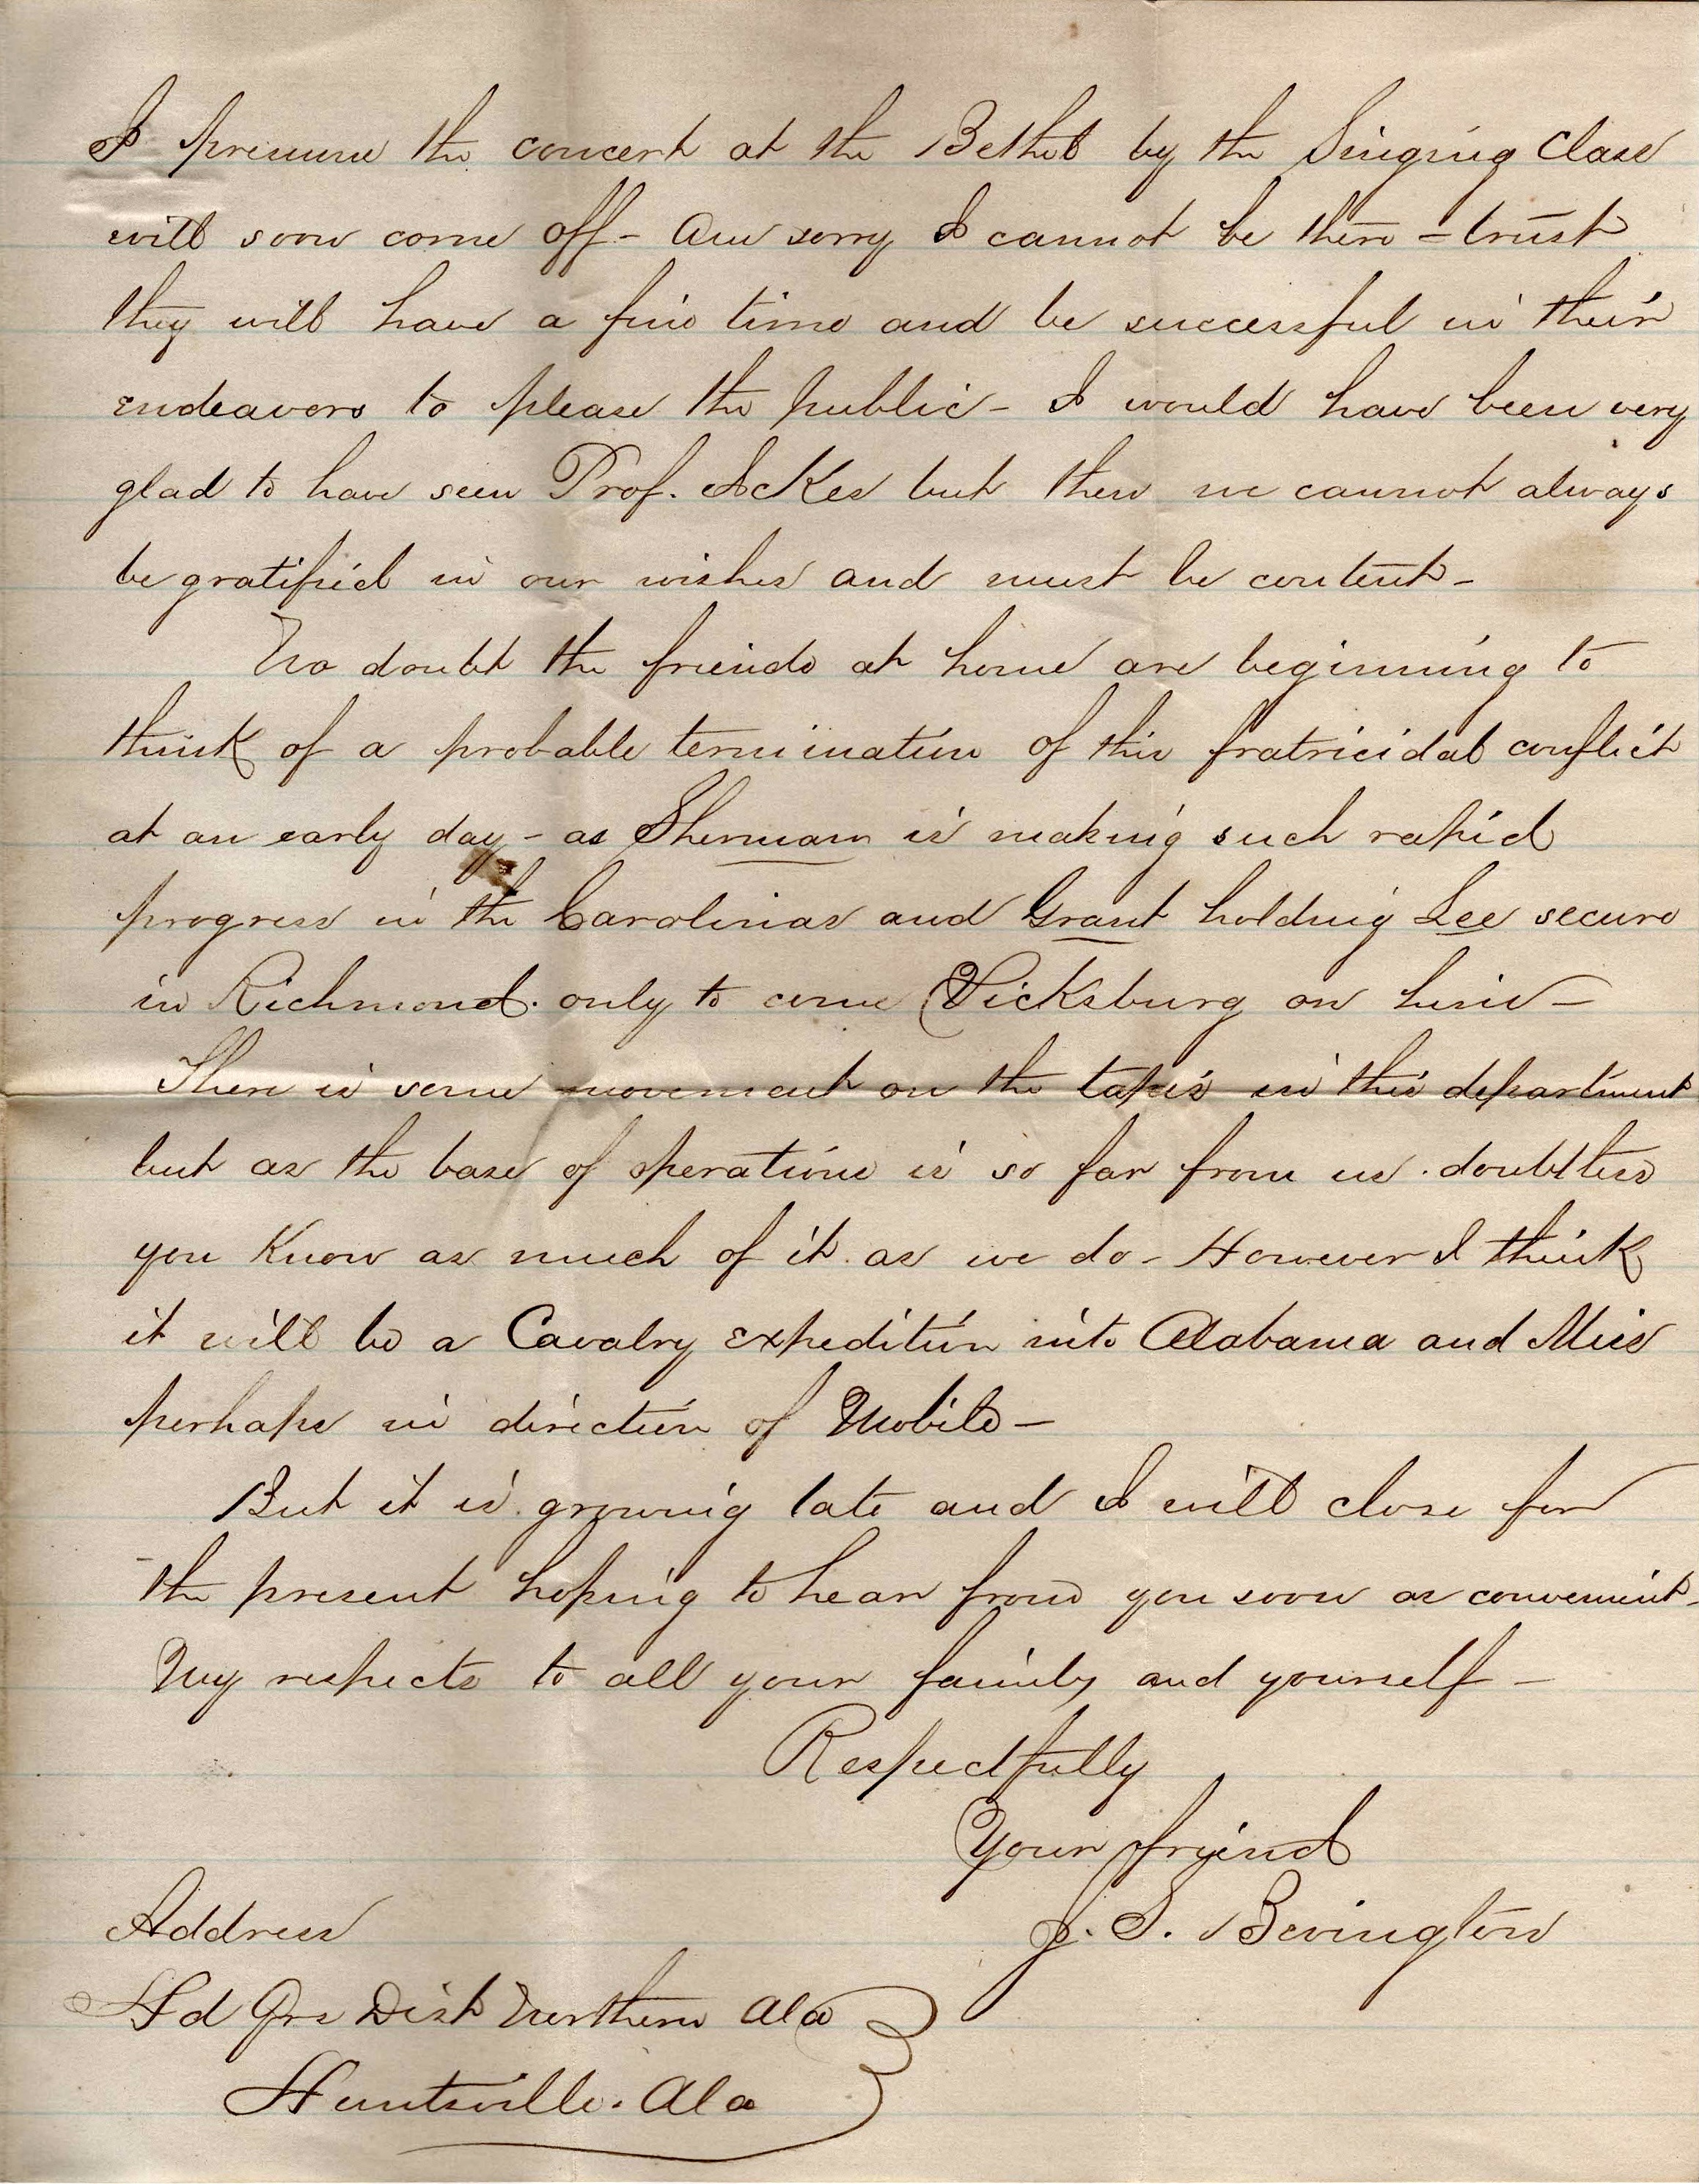 I presume the concert at the Bethel by the Singing Class
will soon come off - Am sorry I cannot be there - trust
they will have a fine time and be successful in their
endeavors to please the public - I would have been very
glad to have seen Prof. Ickes but then we cannot always
be gratified in our wishes and must be content -
No doubt the friends at home are beginning to
think of a probable termination of this fratricidal conflict
at an early day - as Sherman is making such rapid
progress in the Carolinas and Grant holding Lee secure
in Richmond. only to come Vicksburg on him -
There is some movement on the tapis in this department
but as the base of operations is so far from us. doubtless
you Know as much of it as we do - However I think
it will be a Cavalry expedition into Alabama and Miss
perhaps in direction of Mobile -
But it is growing late and I will close for
the present hoping to hear from you soon as convenient -
My respects to all your family and yourself -
Respectfully
Your friend
J. S. Bevington
Address
Hd Qrs Dist Northern Ala
Huntsville. Ala